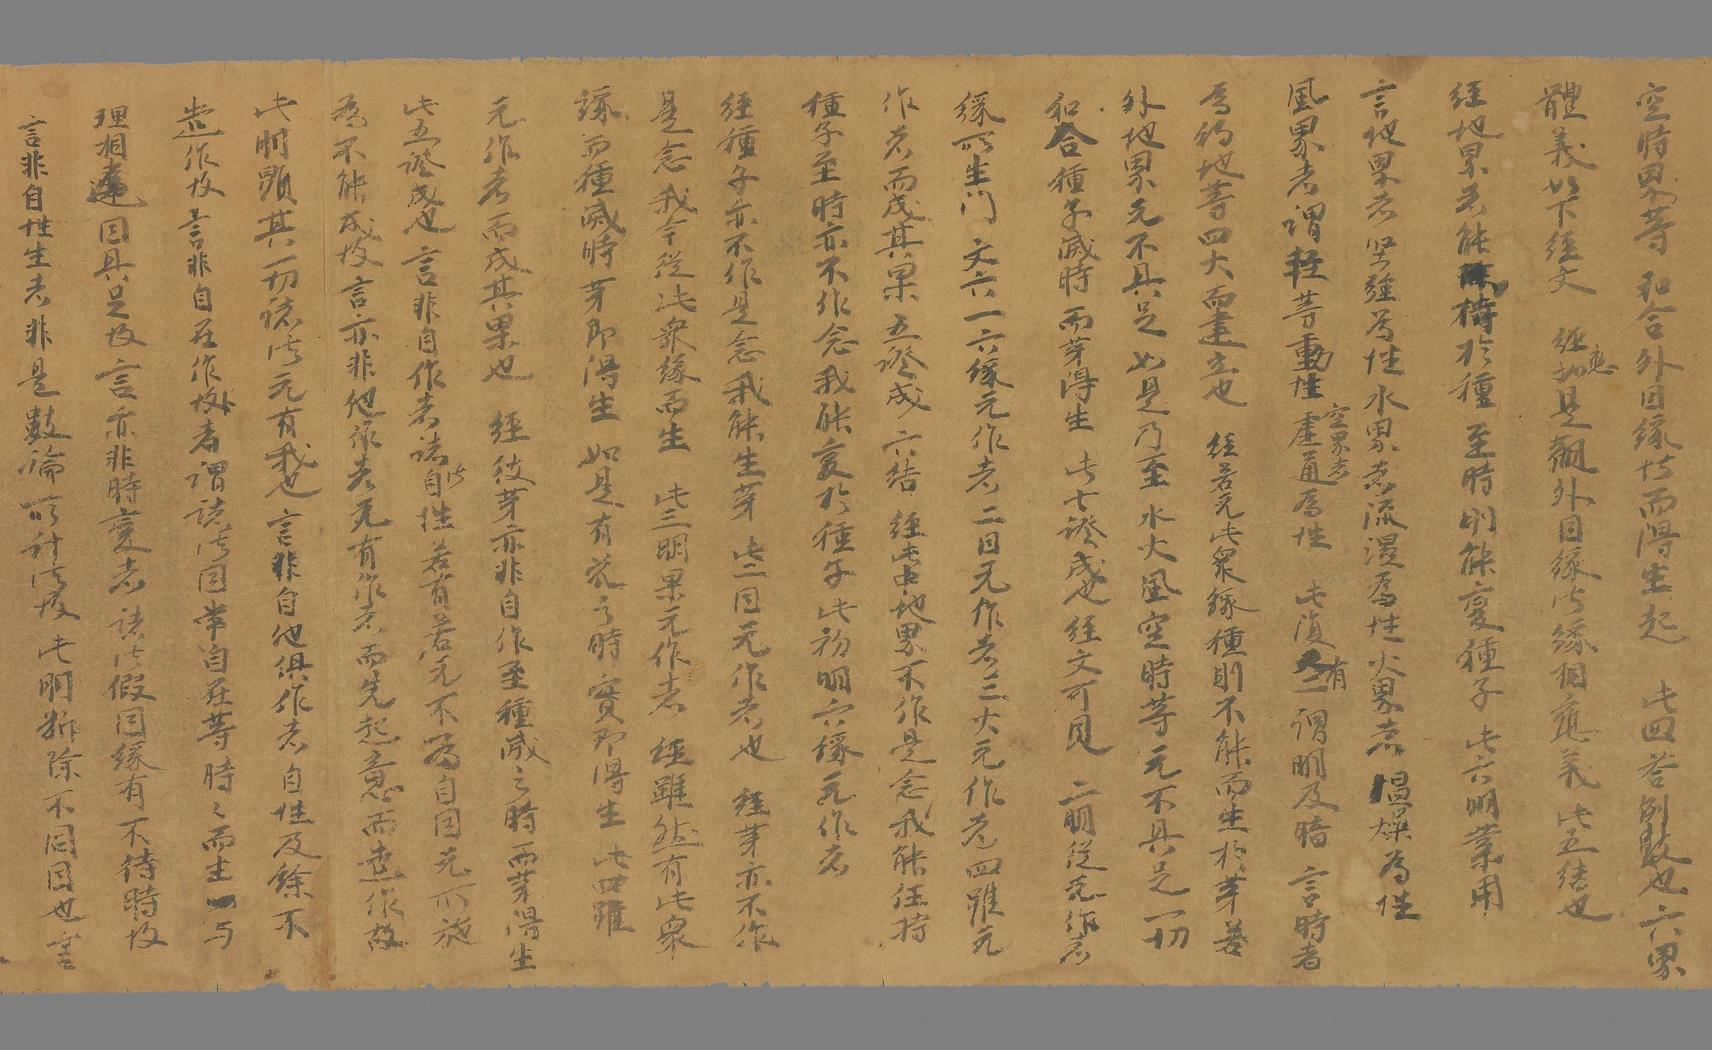 空時界等和合外因緣法而得生起 此四答例故也六界
體義如下經文 經應如是觀外因緣法緣相應義此五結也
經地界者能持於種至時則能變種子此六明業用
言地界者堅強為性水界者流濕為性火界者溫燥為性
風界者謂輕等動性空界者虛通為性 此復有二謂明及暗言時者
為約地等四大而建立也 經若无此眾緣種則不能而生於芽若
外地界无不具足如是乃至水火風空時等无不具足一切
和合種子滅時而芽得生 此七證成也經文可見 二明從无作者
緣所生門 文六一六緣无作者二因无作者三大无作者四雖无
作者而成其果五證成 六結 經此中地界不作是念我能任持
種子至時亦不作念我能變於種子此初明六緣无作者
經種子亦不作是念我能生芽 此二因无作者也 經芽亦不作
是念我今從此眾緣而生 此三明果无作者 經雖然有此眾
緣而種滅時芽即得生 如是有花之時實即得生 此四雖
无作者而成其果也 經彼芽亦非自作至種滅之時而芽得生
此五證成也言非自作者諸法自性若有若无不為自因无所施
為不能成故言亦非他作者先有作者而先起意而造作故
此明顯其一切諸法无有我也 言非自他俱作者自性及餘不
造作故言非自在作者謂諸法因常自在等時之而生与
理相違因具足故言亦非時變者諸法假因緣有不待時故
言非自性生者非是數論所計法故此明斷除不同因也言